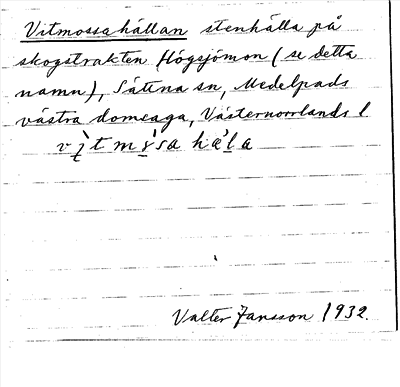 Vitmossahällan stenhälla på
skogstrakten Högsjömon (se detta
namn), Sättna sn, Medelpads
västra domsaga, Västernorrlands l.
Valter Jansson 1932.